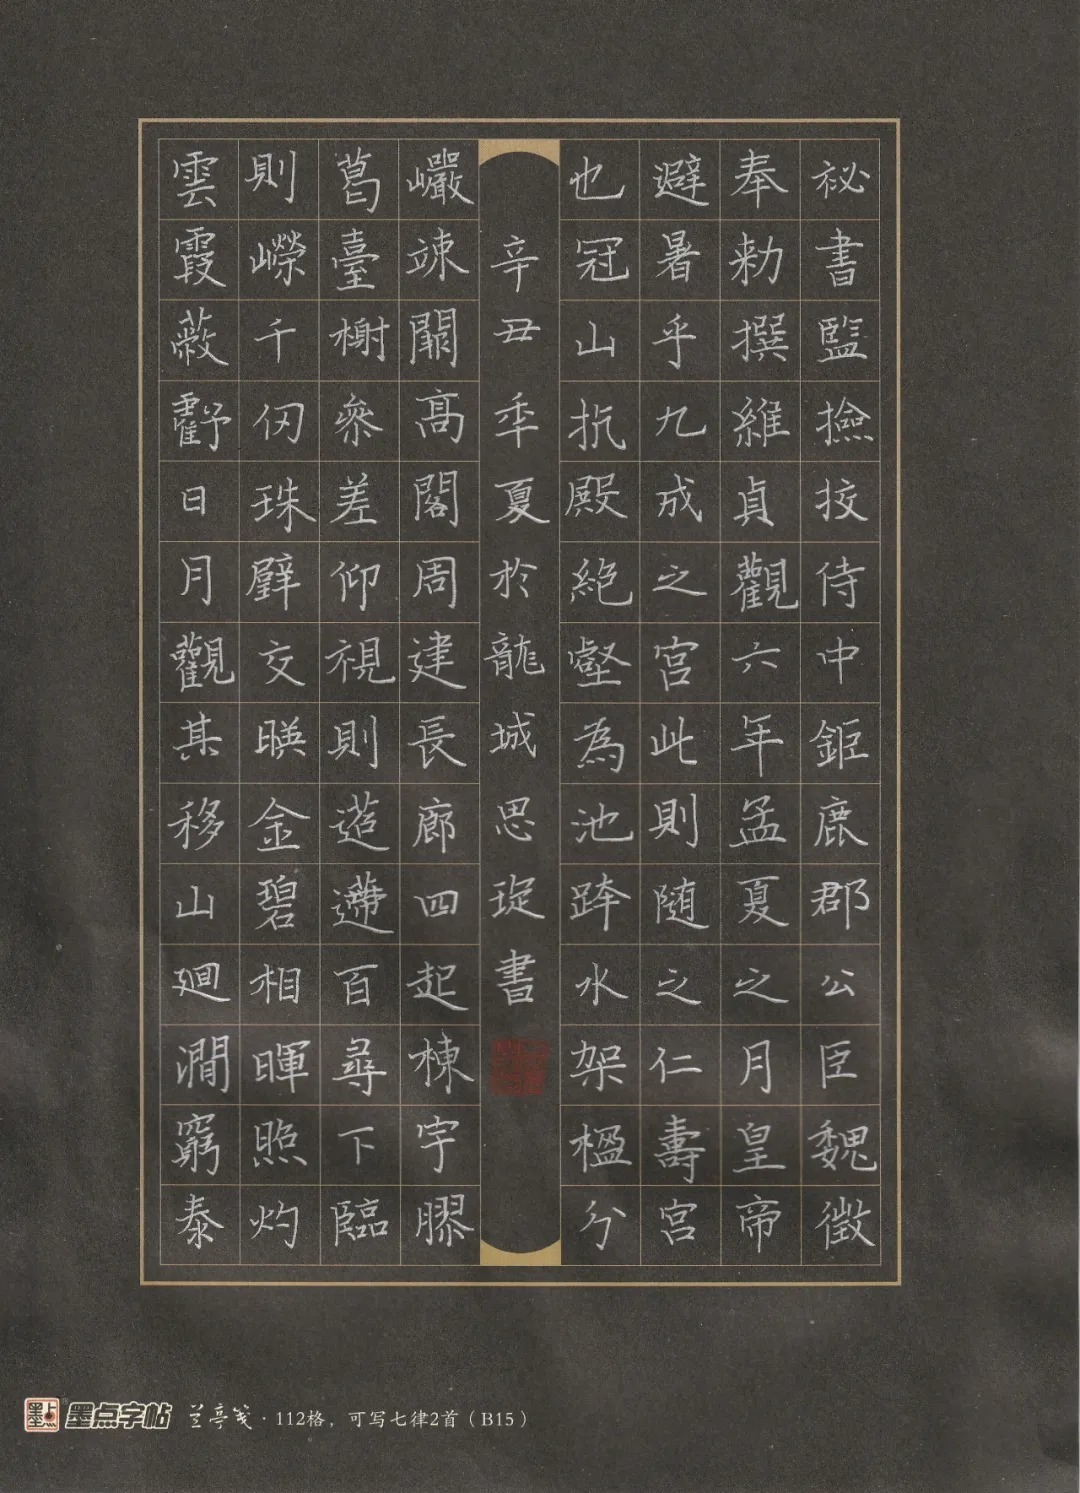 祕書監撿挍侍中鉅鹿郡公臣魏徵
奉勑撰維貞觀六年孟夏之月皇帝
避暑乎九成之宫此則随之仁壽宫
也冠山抗殿絶壑為池跨水架楹分
辛丑年夏於龍城思琁書
巗竦闕高閣周建長廊四起棟宇膠
葛臺榭叅差仰視則迢遰百尋下臨
則崢嶸千仞珠璧交暎金碧相暉照灼
雲霞蔽虧日月觀其移山廻澗窮泰
墨点字帖 兰亭笺·112格，可写七律2首（B15）